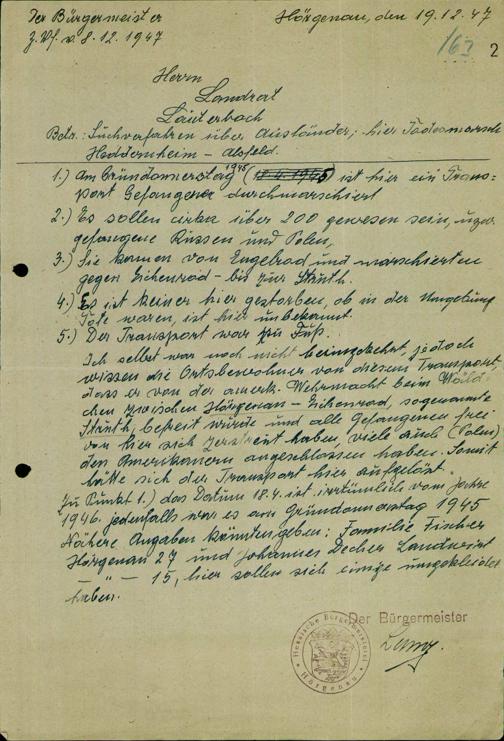 Der Bürgermeister
Hörgenau, den 19.12.47
z. Vf. v. 8.12.1947
163
2
Herrn
Landrat
Lauterbach
Betr.: Suchverfahren über Ausländer; hier Todesmarsch
Heddernheim – Alsfeld.
1.) Am Gründonnerstag 45 (18.4.1946) ist hier ein Trans=
port Gefangener durchmarschiert
2.) Es sollen cirka über 200 gewesen sein, zwar
gefangene Russen und Polen,
3.) Sie kamen von Engelrod und marschierten
gegen Eichenrod – bis zur Stäuth.
4.) Es ist keiner hier gestorben, ob in der Umgebung
Tote waren, ist hier unbekannt.
5.) Der Transport war zu Fuß.
Ich selbst war noch nicht heimgekehrt, jedoch
wissen die Ortsbewohner von diesem Transport,
dass er von der amerk. Wehrmacht beim Wäld-
chen zwischen Hörgenau – Eichenrod, sogenannte
Stäuth, befreit wurde und alle Gefangenen
von hier sich zerstreut haben, viele auch (Polen)
den Amerikanern angeschlossen haben. Somit
hatte sich der Transport hier aufgelöst.
Zu Punkt 1.) das Datum 18.4. ist irrtümlich vom Jahre
1946. jedenfalls war es am Gründonnerstag 1945
Nähere Angaben könnten geben: Familie Fischer
Hörgenau 27 und Johannes Decher Landwirt
– " – 15, hier sollen sich einige umgekleidet
haben.
Der Bürgermeister
Hessische Bürgermeisterei
Hörgenau